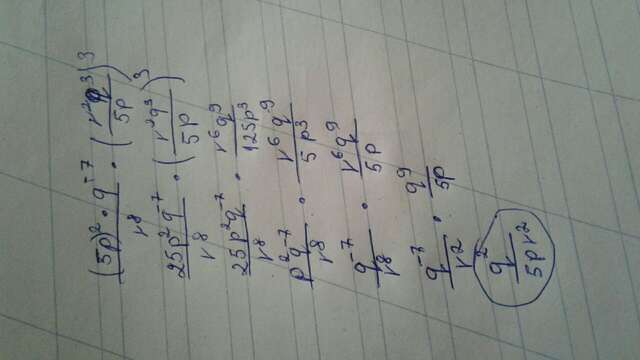 (5p)²·q⁻⁷/r⁸ · (r²q³/5p)³
25p²q⁻⁷/r⁸ · (r²q³/5p)³
25p²q⁻⁷/r⁸ · r⁶q⁹/125p³
p²q⁻⁷/r⁸ · r⁶q⁹/5p³
q⁻⁷/r⁸ · r⁶q⁹/5p
q⁻⁷/r² · q⁹/5p
q²/5pr²